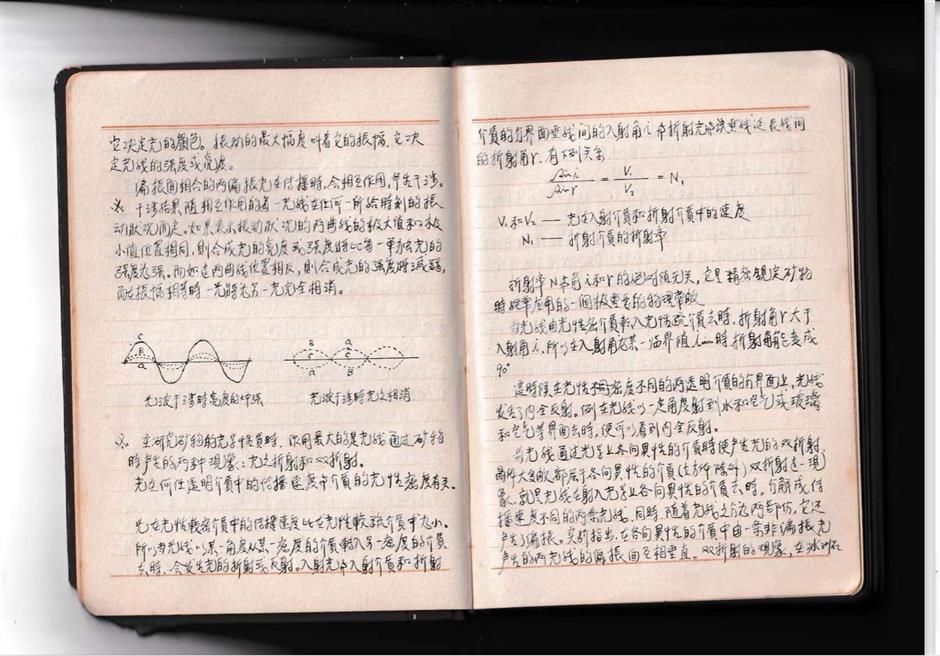 它决定光的颜色。振动的最大幅度叫着它的振幅，它决
定光线的强度或亮度。
偏振面相合的两偏振光在传播時，会相互作用，产生干涉。
※ 干涉结果随相互作用的着一光线在任何一所给時刻的振
动状况而定。如果表示振动状况的两曲线的极大值和极
小值位置相同，则合成光的亮度或强度将比每一单独光的
强度为强。而如这两曲线位置相反，则合成光的强度将减弱，
而在振幅相等時一光将为另一光完全相消。
C
B
a
a
C
B
B
C
a
光波干涉时亮度的加强
光波干涉時光之相消
※ 在研究矿物的光学性質時，作用最大的是光线通过矿物
時产生的两种现象：光之折射和双折射。
光在任何透明介質中的传播速度与介質的光性密度有关。
光在光性較密介質中的传播速度比在光性較疏介質中为小。
所以当光线以某一角度从某一密度的介質轉入另一密度的介質
去時，会发生光的折射或反射。入射光与入射介質和折射
介質的分界面垂线间的入射角i与折射光与该垂线延長线间
的折射角r，有下列关系
sin i / sin r = V₁ / V₂ = N,
V₁和V₂ — 光在入射介質和折射介質中的速度
N, — 折射介質的折射率
折射率N与角i和r的絕对值无关，它是精确鏡定矿物
時經常应用的一個极重要的物理常数
当光线由光性密介質轉入光性疏介質去時，折射角r大于
入射角i，所以在入射角为某一临界值i lim時折射角能变成
90°
這時候在光性不同密度不同的两透明介質的分界面上，光线
发生了内全反射。例在光线以一定角度射到水和空气或玻璃
和空气等界面去時，便可以看到内全反射。
当光线通过光学上各向異性的介質時便产生光的双折射
晶体大多数都屬于各向異性的介質（立方体除外）双折射這一现
象，就是光线在射入光学上各向異性的介質去時，分解成传
播速度不同的两条光线。同時，随着光线之分为两部份，它还
产生了偏振。实验指出，在各向異性的介質中由一条非偏振光
产生的两光线的偏振面互相垂直。双折射的现象，在冰洲石